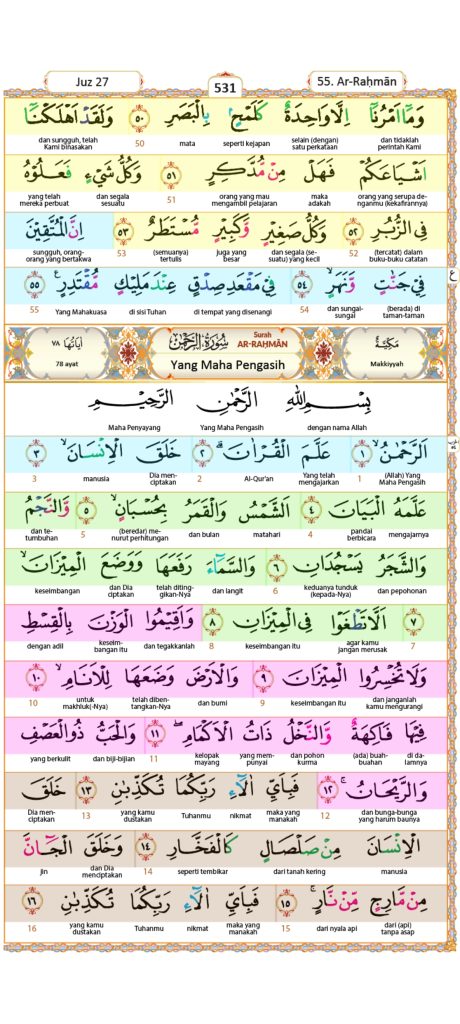 Juz 27
531
55. Ar-Raḥmān
وَمَآ اَمْرُنَآ اِلَّا وَاحِدَةٌ كَلَمْحٍۢ بِالْبَصَرِ ٥٠ وَلَقَدْ اَهْلَكْنَآ
dan tidaklah perintah Kami selain (dengan) satu perkataan seperti kejapan mata 50 dan sungguh, telah Kami binasakan
اَشْيَاعَكُمْ فَهَلْ مِنْ مُّدَّكِرٍ ٥١ وَكُلُّ شَيْءٍ فَعَلُوْهُ
orang yang serupa de-nganmu (kekafirannya) maka adakah orang yang mau mengambil pelajaran 51 dan segala sesuatu yang telah mereka perbuat
فِى الزُّبُرِ ٥٢ وَكُلُّ صَغِيْرٍ وَّكَبِيْرٍ مُّسْتَطَرٌ ٥٣ اِنَّ الْمُتَّقِيْنَ
(tercatat) dalam buku-buku catatan 52 dan segala (se-suatu) yang kecil juga yang besar (semuanya) tertulis 53 sungguh, orang-orang yang bertakwa
فِيْ جَنّٰتٍ وَّنَهَرٍۙ ٥٤ فِيْ مَقْعَدِ صِدْقٍ عِنْدَ مَلِيْكٍ مُّقْتَدِرٍ ࣖ ٥٥
(berada) di taman-taman dan sungai-sungai 54 di tempat yang disenangi di sisi Tuhan Yang Mahakuasa 55
ع
مَكِّيَّةٌ
Makkiyyah
سُوْرَةُ الرَّحْمٰنِ
Surah
AR-RAḤMĀN
Yang Maha Pengasih
اٰيَاتُهَا ٧٨
78 ayat
بِسْمِ اللّٰهِ الرَّحْمٰنِ الرَّحِيْمِ
dengan nama Allah Yang Maha Pengasih Maha Penyayang
اَلرَّحْمٰنُۙ ١ عَلَّمَ الْقُرْاٰنَۗ ٢ خَلَقَ الْاِنْسَانَۙ ٣
(Allah) Yang Maha Pengasih 1 Yang telah mengajarkan Al-Qur'an 2 Dia men-ciptakan manusia 3
عَلَّمَهُ الْبَيَانَ ٤ اَلشَّمْسُ وَالْقَمَرُ بِحُسْبَانٍۙ ٥ وَّالنَّجْمُ
mengajarnya pandai berbicara 4 matahari dan bulan (beredar) me-nurut perhitungan 5 dan te-tumbuhan
وَالشَّجَرُ يَسْجُدَانِ ٦ وَالسَّمَاۤءَ رَفَعَهَا وَوَضَعَ الْمِيْزَانَۙ
dan pepohonan keduanya tunduk (kepada-Nya) 6 dan langit telah diting-gikan-Nya dan Dia ciptakan keseimbangan
٧ اَلَّا تَطْغَوْا فِى الْمِيْزَانِ ٨ وَاَقِيْمُوا الْوَزْنَ بِالْقِسْطِ
7 agar kamu jangan merusak keseimbangan itu 8 dan tegakkanlah keseim-bangan itu dengan adil
وَلَا تُخْسِرُوا الْمِيْزَانَ ٩ وَالْاَرْضَ وَضَعَهَا لِلْاَنَامِۙ ١٠
dan janganlah kamu mengurangi keseimbangan itu 9 dan bumi telah diben-tangkan-Nya untuk makhluk(-Nya) 10
فِيْهَا فَاكِهَةٌ وَّالنَّخْلُ ذَاتُ الْاَكْمَامِۖ ١١ وَالْحَبُّ ذُو الْعَصْفِ
di da-lamnya (ada) buah-buahan dan pohon kurma yang mem-punyai kelopak mayang 11 dan biji-bijian yang berkulit
وَالرَّيْحَانُۚ ١٢ فَبِاَيِّ اٰلَاۤءِ رَبِّكُمَا تُكَذِّبٰنِ ١٣ خَلَقَ
dan bunga-bunga yang harum baunya 12 maka yang manakah nikmat Tuhanmu yang kamu dustakan 13 Dia men-ciptakan
الْاِنْسَانَ مِنْ صَلْصَالٍ كَالْفَخَّارِ ١٤ وَخَلَقَ الْجَاۤنَّ
manusia dari tanah kering seperti tembikar 14 dan Dia menciptakan jin
مِنْ مَّارِجٍ مِّنْ نَّارٍۚ ١٥ فَبِاَيِّ اٰلَاۤءِ رَبِّكُمَا تُكَذِّبٰنِ ١٦
dari (api) tanpa asap dari nyala api 15 maka yang manakah nikmat Tuhanmu yang kamu dustakan 16